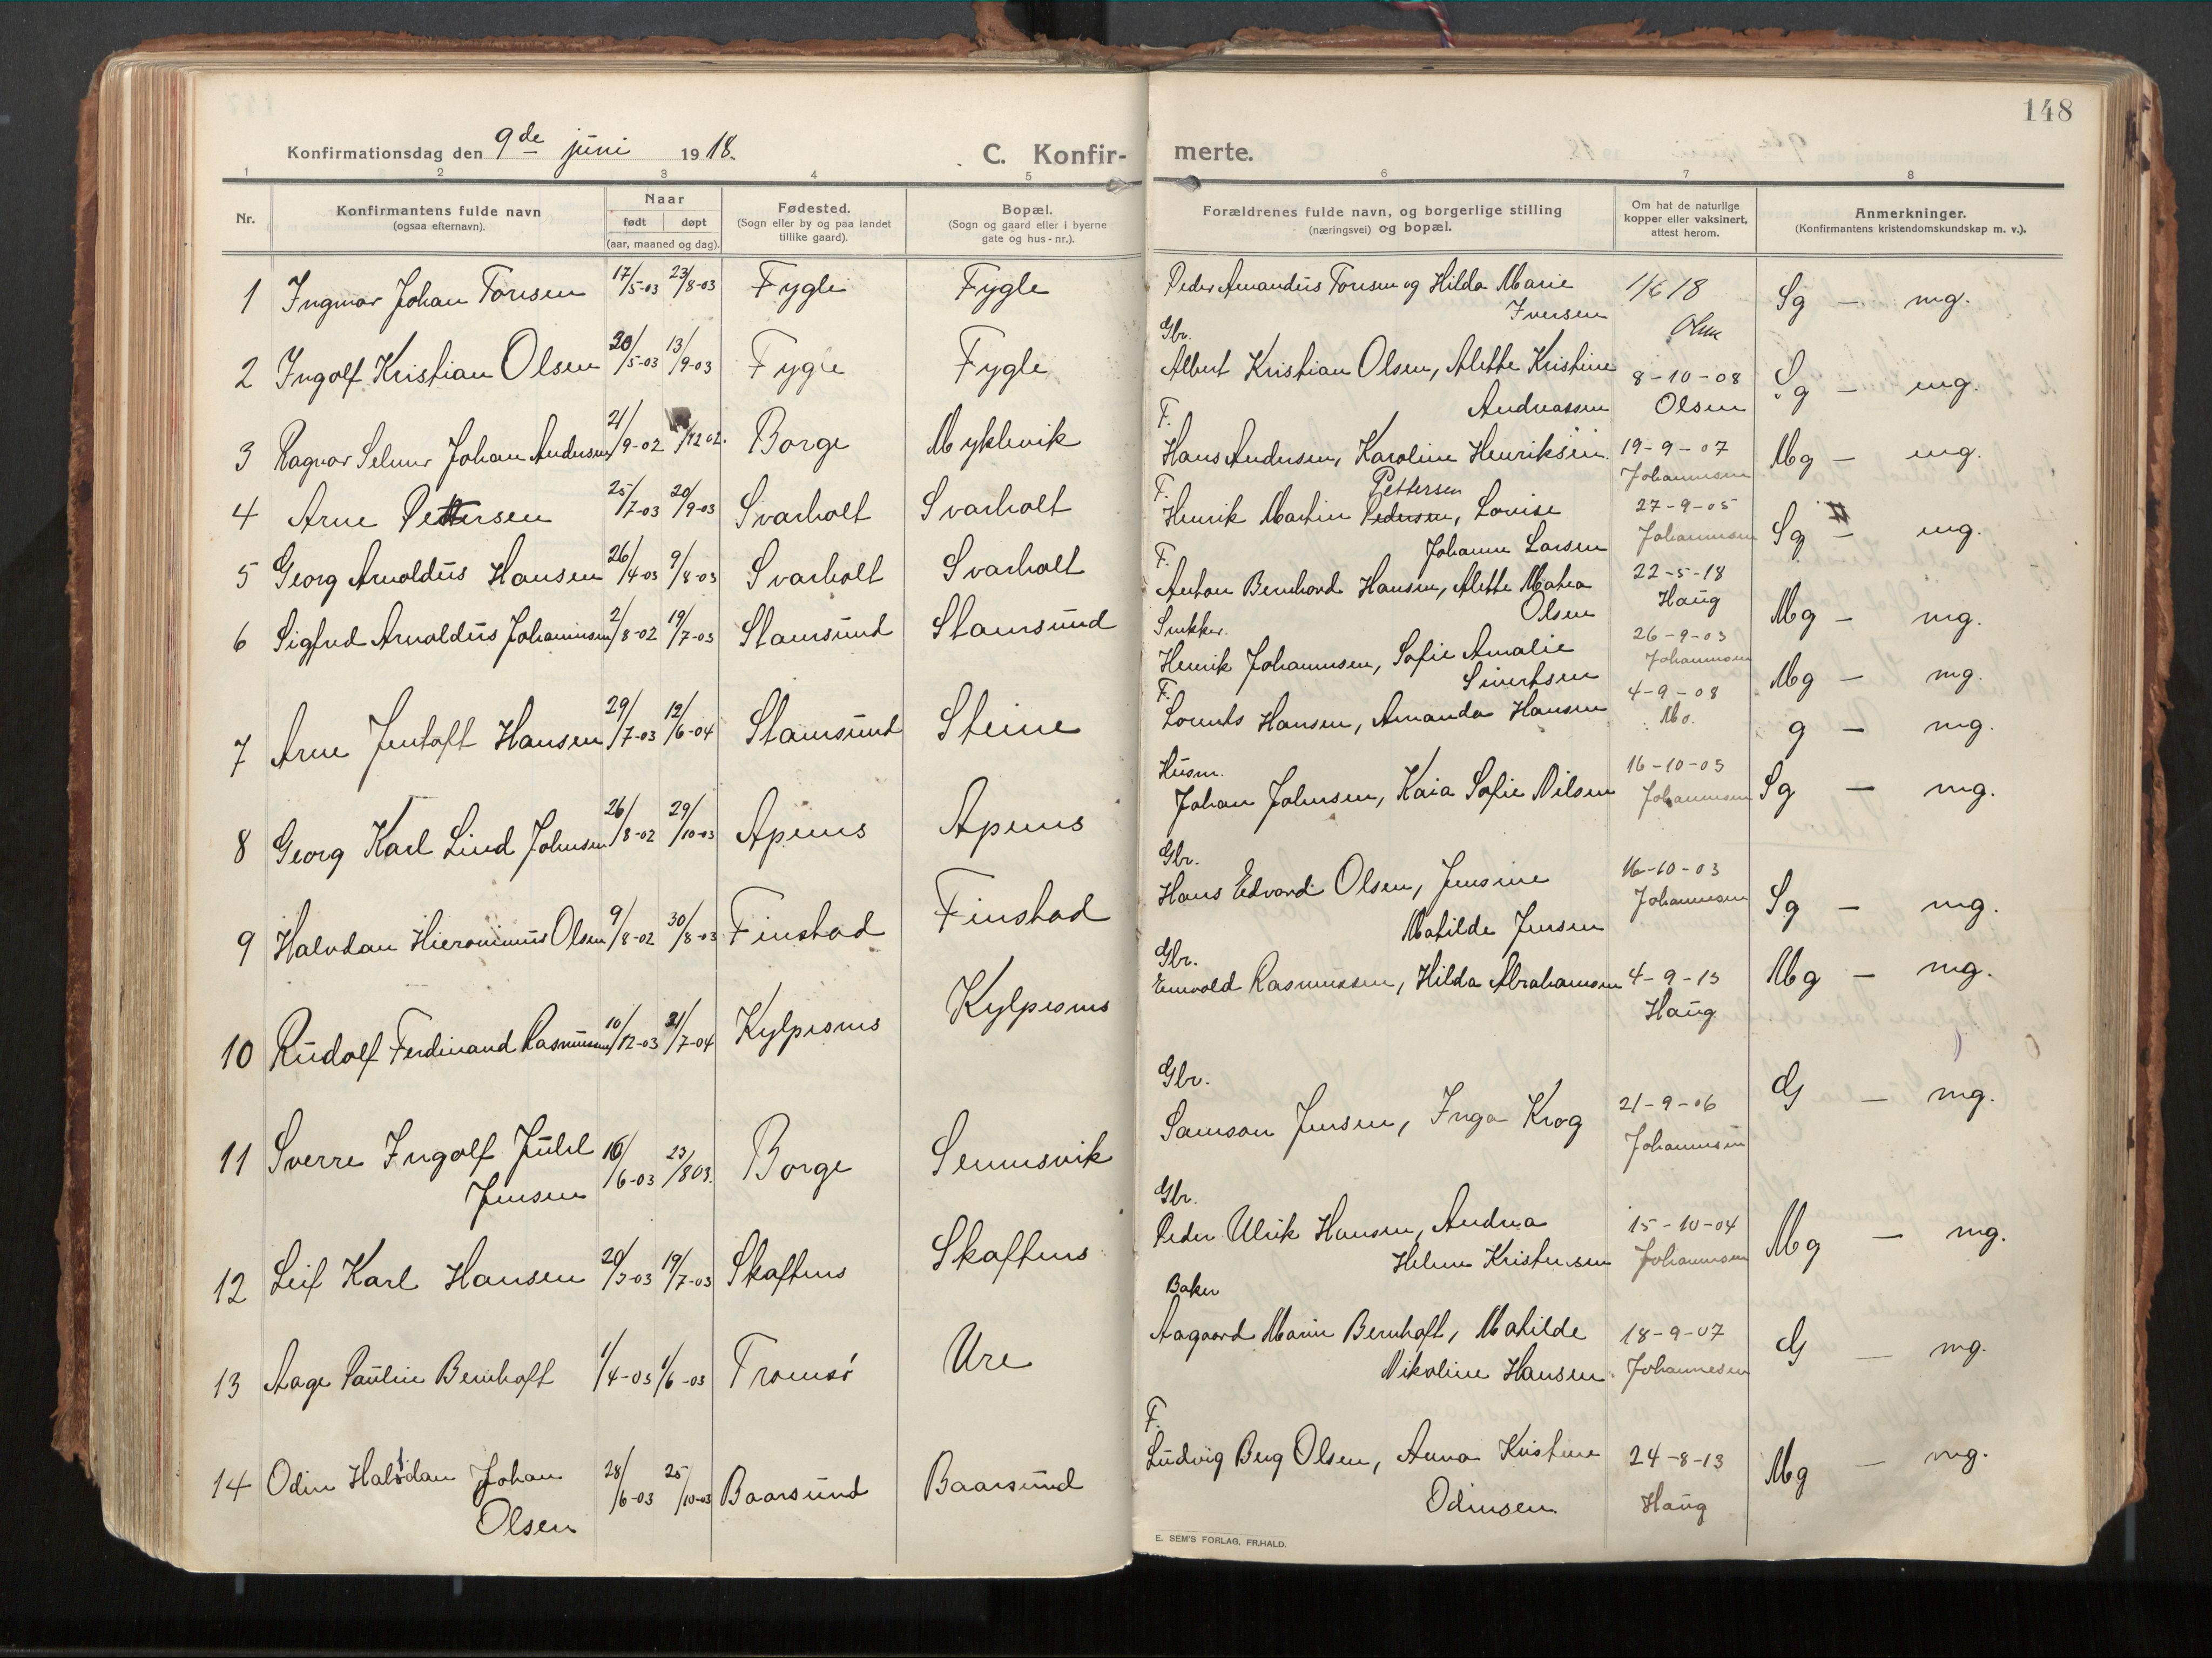 148
Konfirmationsdag den 9de juni 1918.
C. Konfir- merte.
1 2 3 4 5 6 7 8
Nr.
Konfirmantens fulde navn
(ogsaa efternavn).
Naar
født døpt
(aar, maaned og dag).
Fødested.
(Sogn eller by og paa landet
tillike gaard).
Bopæl.
(Sogn og gaard eller i byerne
gate og hus-nr.).
Forældrenes fulde navn, og borgerlige stilling
(næringsvei) og bopæl.
Om hat de naturlige
kopper eller vaksinert,
attest herom.
Anmerkninger.
(Konfirmantens kristendomskundskap m. v.).
1 Ingmar Johan Tonsen 17/5-03 23/8-03 Fygle Fygle Peder Amandus Tonsen og Hilda Marie 1/6 18 Sg - mg.
Iversen
2 Ingolf Kristian Olsen 20/5-03 13/9-03 Fygle Fygle Gbr.
Albert Kristian Olsen, Alette Kristine 8-10-08 Sg - mg.
Andreassen Olsen
3 Ragnar Selmer Johan Andersen 21/9-02 /12 02. Borge Myklevik F.
Hans Andersen, Karoline Henriksen 19-9-07 Mg - mg.
Johannesen
4 Arne Pettersen 25/7-03 20/9-03 Svarholt Svarholt F. Pettersen
Henrik Martin Pedersen, Lovise 27-9-05 Sg - mg.
Johanne Larsen Johannesen
5 Georg Arnoldus Hansen 26/4-03 9/8-03 Svarholt Svarholt F.
Anton Bernhard Hansen, Alette Matea 22-5-18 Mg - mg.
Olsen Haug
6 Sigfred Arnoldus Johannesen 2/8-02 19/7-03 Stamsund Stamsund Snekker.
Henrik Johannesen, Sofie Amalie 26-9-03 Mg - mg.
Sivertsen Johannesen
7 Arne Jentoft Hansen 29/7-03 12/6-04 Stamsund Steine F.
Lorents Hansen, Amanda Hansen 4-9-08 g - mg.
Mo.
8 Georg Karl Lind Johnsen 26/8-02 29/10-03 Apenes Apenes Husm.
Johan Johnsen, Kaia Sofie Nilsen 16-10-03 Sg - mg.
Johannesen
9 Halvdan Hieronimus Olsen 9/8-02 30/8-03 Finstad Finstad Gbr.
Hans Edvard Olsen, Jensine 16-10-03 Sg - mg.
Matilde Jensen Johannesen
10 Rudolf Ferdinand Rasmussen 10/12-03 31/7-04 Kylpesnes Kylpesnes Gbr.
Rasmussen, Hilda Abrahamsen 4-9-13 Mg - mg.
Haug
11 Sverre Ingolf Juhl 16/6-03 23/8 03. Borge Sennesvik Gbr.
Jensen
Samson Jensen, Inga Krog 21-9-06 G - mg.
Johannesen
12 Leif Karl Hansen 20/3-03 19/7-03 Skaftnes Skaftnes Gbr.
Peder Ulrik Hansen, Andrea 15-10-04 Mg - mg.
Helene Kristensen Johannesen
13 Aage Pauline Bernhoft 1/4-03 1/6-03 Tromsø Ure Baker
Aagaard Marin Bernhoft, Matilde 18-9-07 G - mg.
Nikoline Hansen Johannesen
14 Odin Halvdan Johan 28/6-03 25/10-03 Baarsund Baarsund F.
Olsen
Ludvig Berg Olsen, Anna Kristine 24-8-13 Mg - mg.
Odinsen. Haug
E. SEM'S FORLAG, FR.HALD.